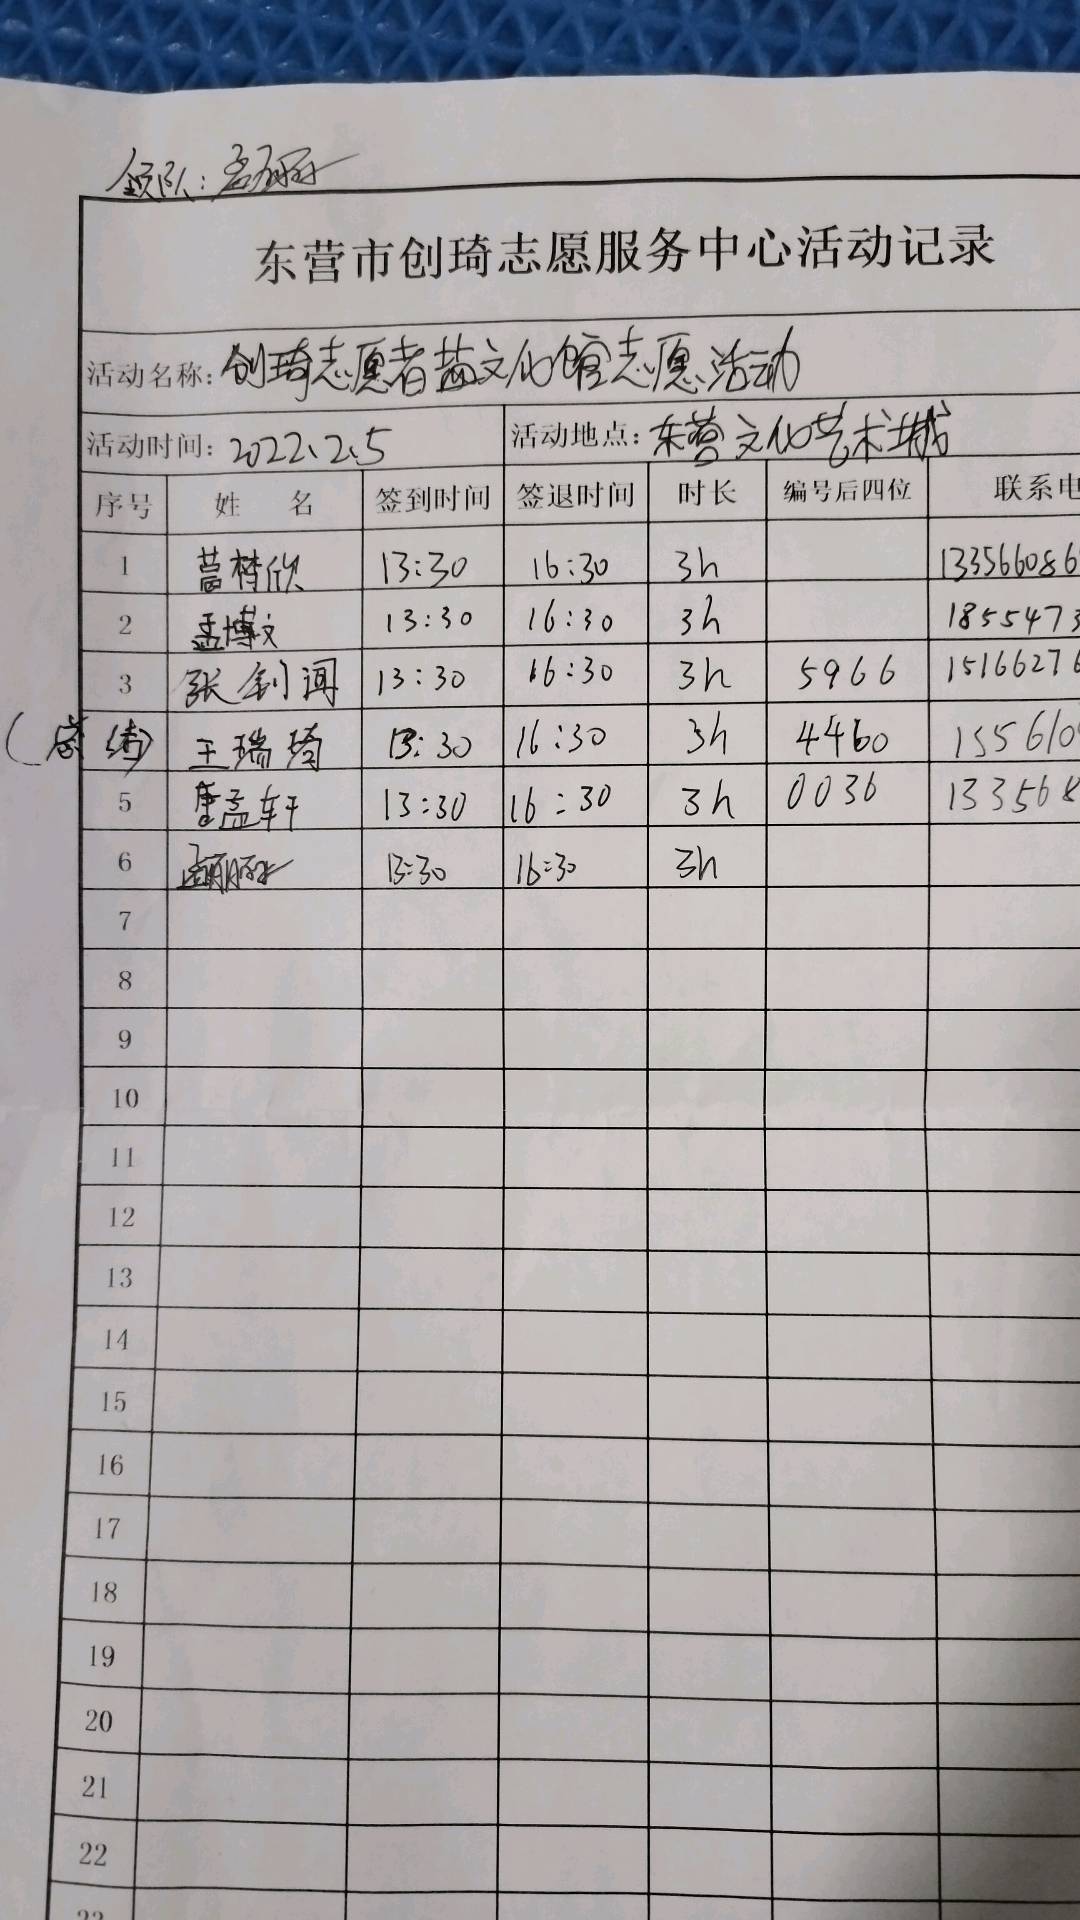 领队：孟丽
东营市创琦志愿服务中心活动记录
活动名称：创琦志愿者盐文化馆志愿活动
活动时间：2022、2、5 活动地点：东营文化艺术城
序号 姓 名 签到时间 签退时间 时长 编号后四位 联系电
1 梦欣 13:30 16:30 3h 133566086
2 孟博文 13:30 16:30 3h 1855473
3 张剑闻 13:30 16:30 3h 5966 15166276
(总结) 王瑞琦 13:30 16:30 3h 4460 155610
5 唐孟轩 13:30 16:30 3h 0036 133568
6 13:30 16:30 3h
7
8
9
10
11
12
13
14
15
16
17
18
19
20
21
22
23